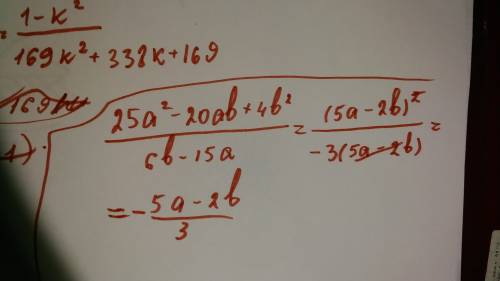 = 1-k² / 169k² + 338k + 169
169
1)
25a² - 20ab + 4b² / 6b - 15a = (5a - 2b)² / -3(5a - 2b) =
= - 5a - 2b / 3